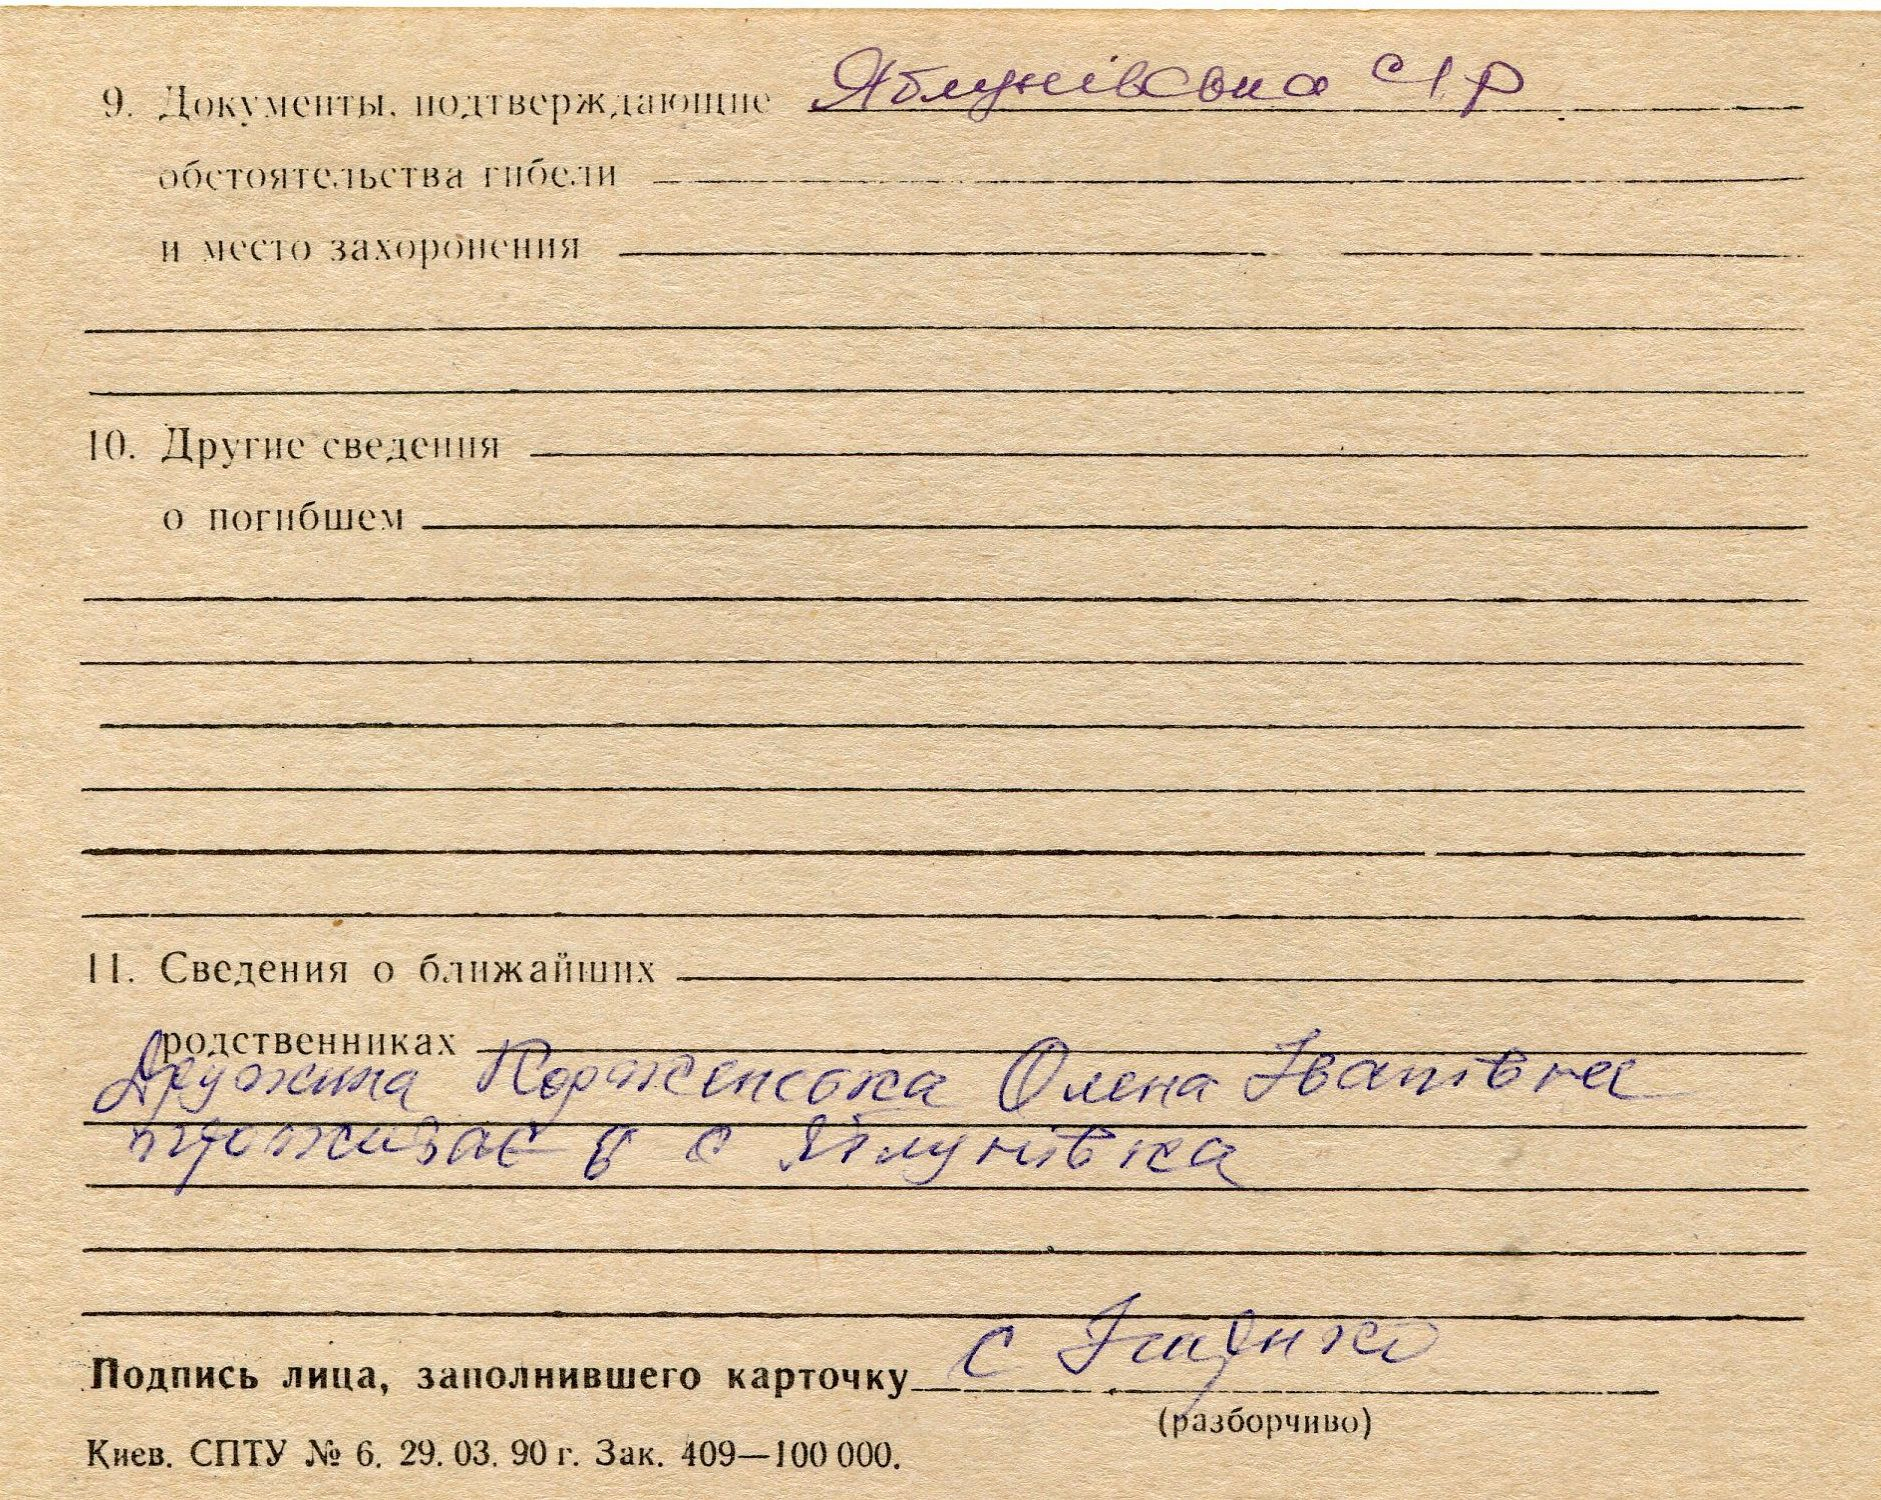 9. Документы, подтверждающие Яблунівська С/Р
обстоятельства гибели
и место захоронения
10. Другие сведения
о погибшем
11. Сведения о ближайших
родственниках
Дружина Корженська Олена Іванівна
проживає в с Яблунівка
Подпись лица, заполнившего карточку С
(разборчиво)
Киев. СПТУ № 6. 29. 03. 90 г. Зак. 409—100 000.